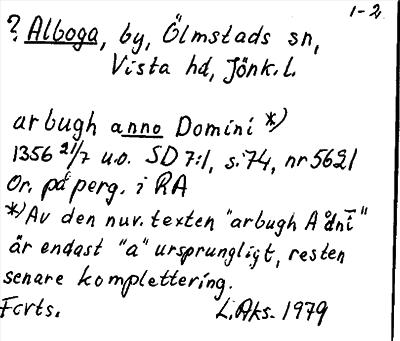 1-2
? Alboga, by, Ölmstads sn,
Vista hd, Jönk. l.
arbugh anno Domini *)
1356 21/7 u.o. SD 7:1, s. 74, nr 5621
Or. på perg. i RA
*) Av den nuv. texten "arbugh A° dni"
är endast "a" ursprungligt, resten
senare komplettering.
Forts. L. Aks. 1979